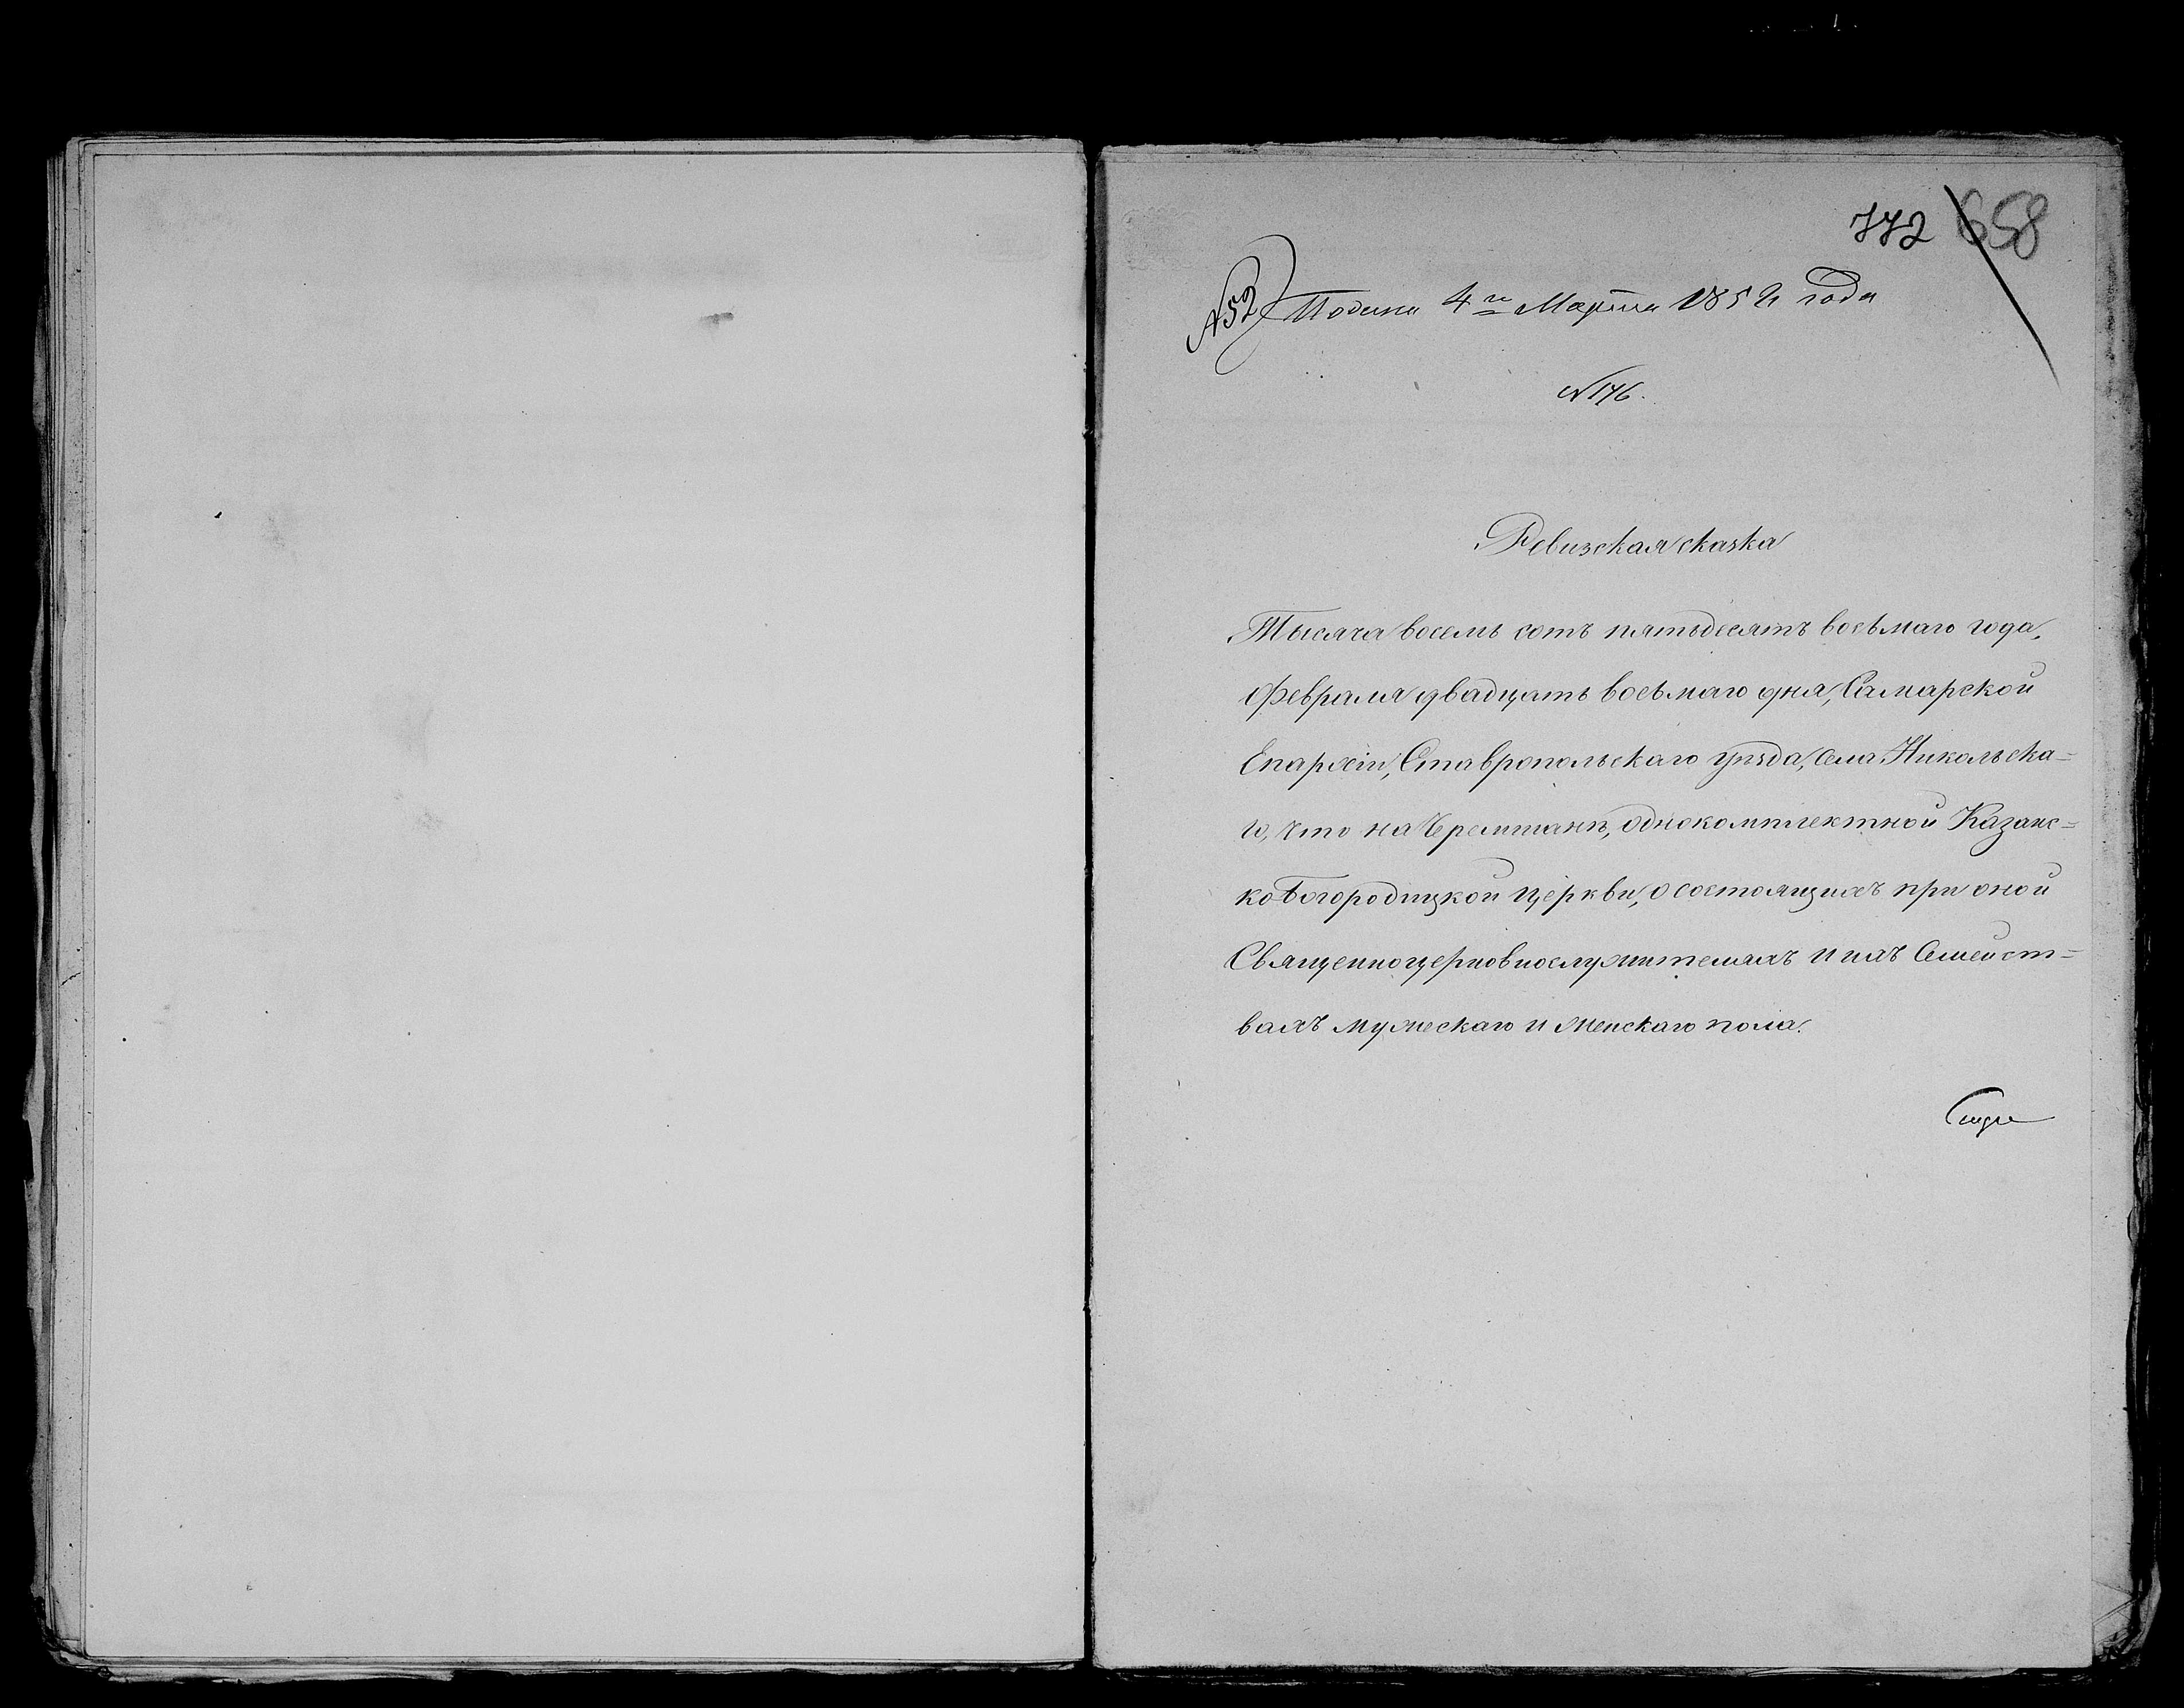 772 658
N52 Подана 4го Марта 1858 года
N 176.
Ревизская сказка
Тысяча восемь сотъ пятьдесятъ восьмаго года,
Февраля двадцать восьмаго дня, Самарской
Епархіи, Ставропольскаго уѣзда, села Никольска=
го, что на Черемшанѣ, однокомплектной Казанс=
ко Богородицкой Церкви, о состоящихъ при оной
Священноцерковнослужителяхъ и ихъ Семейст=
вахъ мужескаго и женскаго пола.